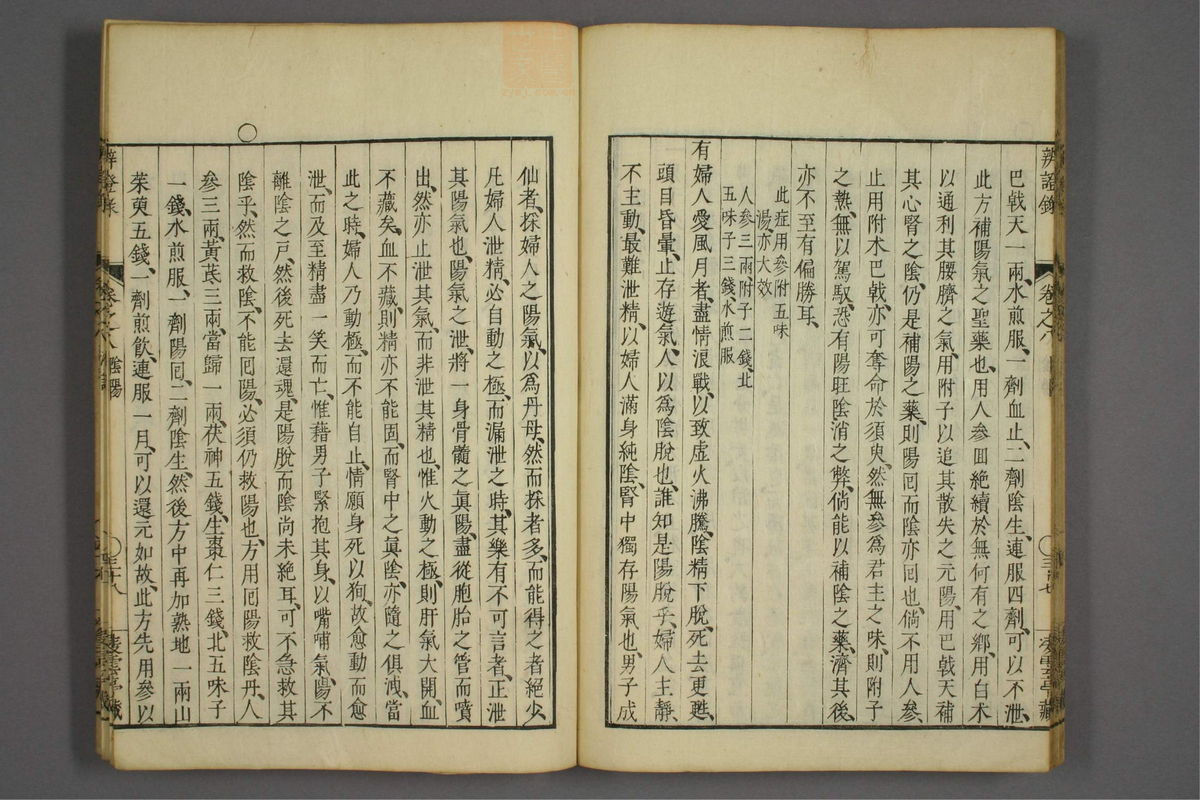 辨證錄 卷之六
巴戟天一兩、水煎服、一劑血止、二劑陰生、連服四劑、可以不泄、
此方補陽氣之聖藥也、用人參回絕續於無何有之鄉、用白术
以通利其腰臍之氣、用附子以追其散失之元陽、用巴戟天補
其心腎之陰、仍是補陽之藥、則陽回而陰亦回也、倘不用人參、
止用附木巴戟、亦可奪命於須臾、然無參爲君主之味、則附子
之熱、無以駕馭、恐有陽旺陰消之弊、倘能以補陰之藥、濟其後、
亦不至有偏勝耳、
此症用參附五味
湯亦大效
人參三兩、附子二錢、北
五味子三錢、水煎服
有婦人愛風月者、盡情浪戰、以致虛火沸騰、陰精下脫、死去更甦、
頭目昏暈、止存遊氣、人以爲陰脫也、誰知是陽脫乎、婦人主靜、
不主動、最難泄精、以婦人滿身純陰、腎中獨存陽氣也、男子成
仙者、採婦人之陽氣、以爲丹母、然而採者多、而能得之者絕少、
凡婦人泄精、必自動之極、而漏泄之時、其樂有不可言者、正泄
其陽氣也、陽氣之泄、將一身骨髓之眞陽、盡從胞胎之管而噴
出、然亦止泄其氣、而非泄其精也、惟火動之極、則肝氣大開、血
不藏矣、血不藏則精亦不能固、而腎中之眞陰、亦隨之俱洩、當
此之時、婦人乃動極、而不能自止、情願身死以狥、故愈動而愈
泄、而及至精盡一笑而亡、惟藉男子緊抱其身、以嘴哺氣、陽不
離陰之戸、然後死去還魂、是陽脫而陰尚未絕耳、可不急救其
陰乎、然而救陰、不能回陽、必須仍救陽也、方用回陽救陰丹、人
參三兩、黃茋三兩、當歸一兩、茯神五錢、生棗仁三錢、北五味子
一錢、水煎服、一劑陽回、二劑陰生、然後方中再加熟地一兩、山
茱萸五錢、一劑煎飲、連服一月、可以還元如故、此方先用參以
陰陽